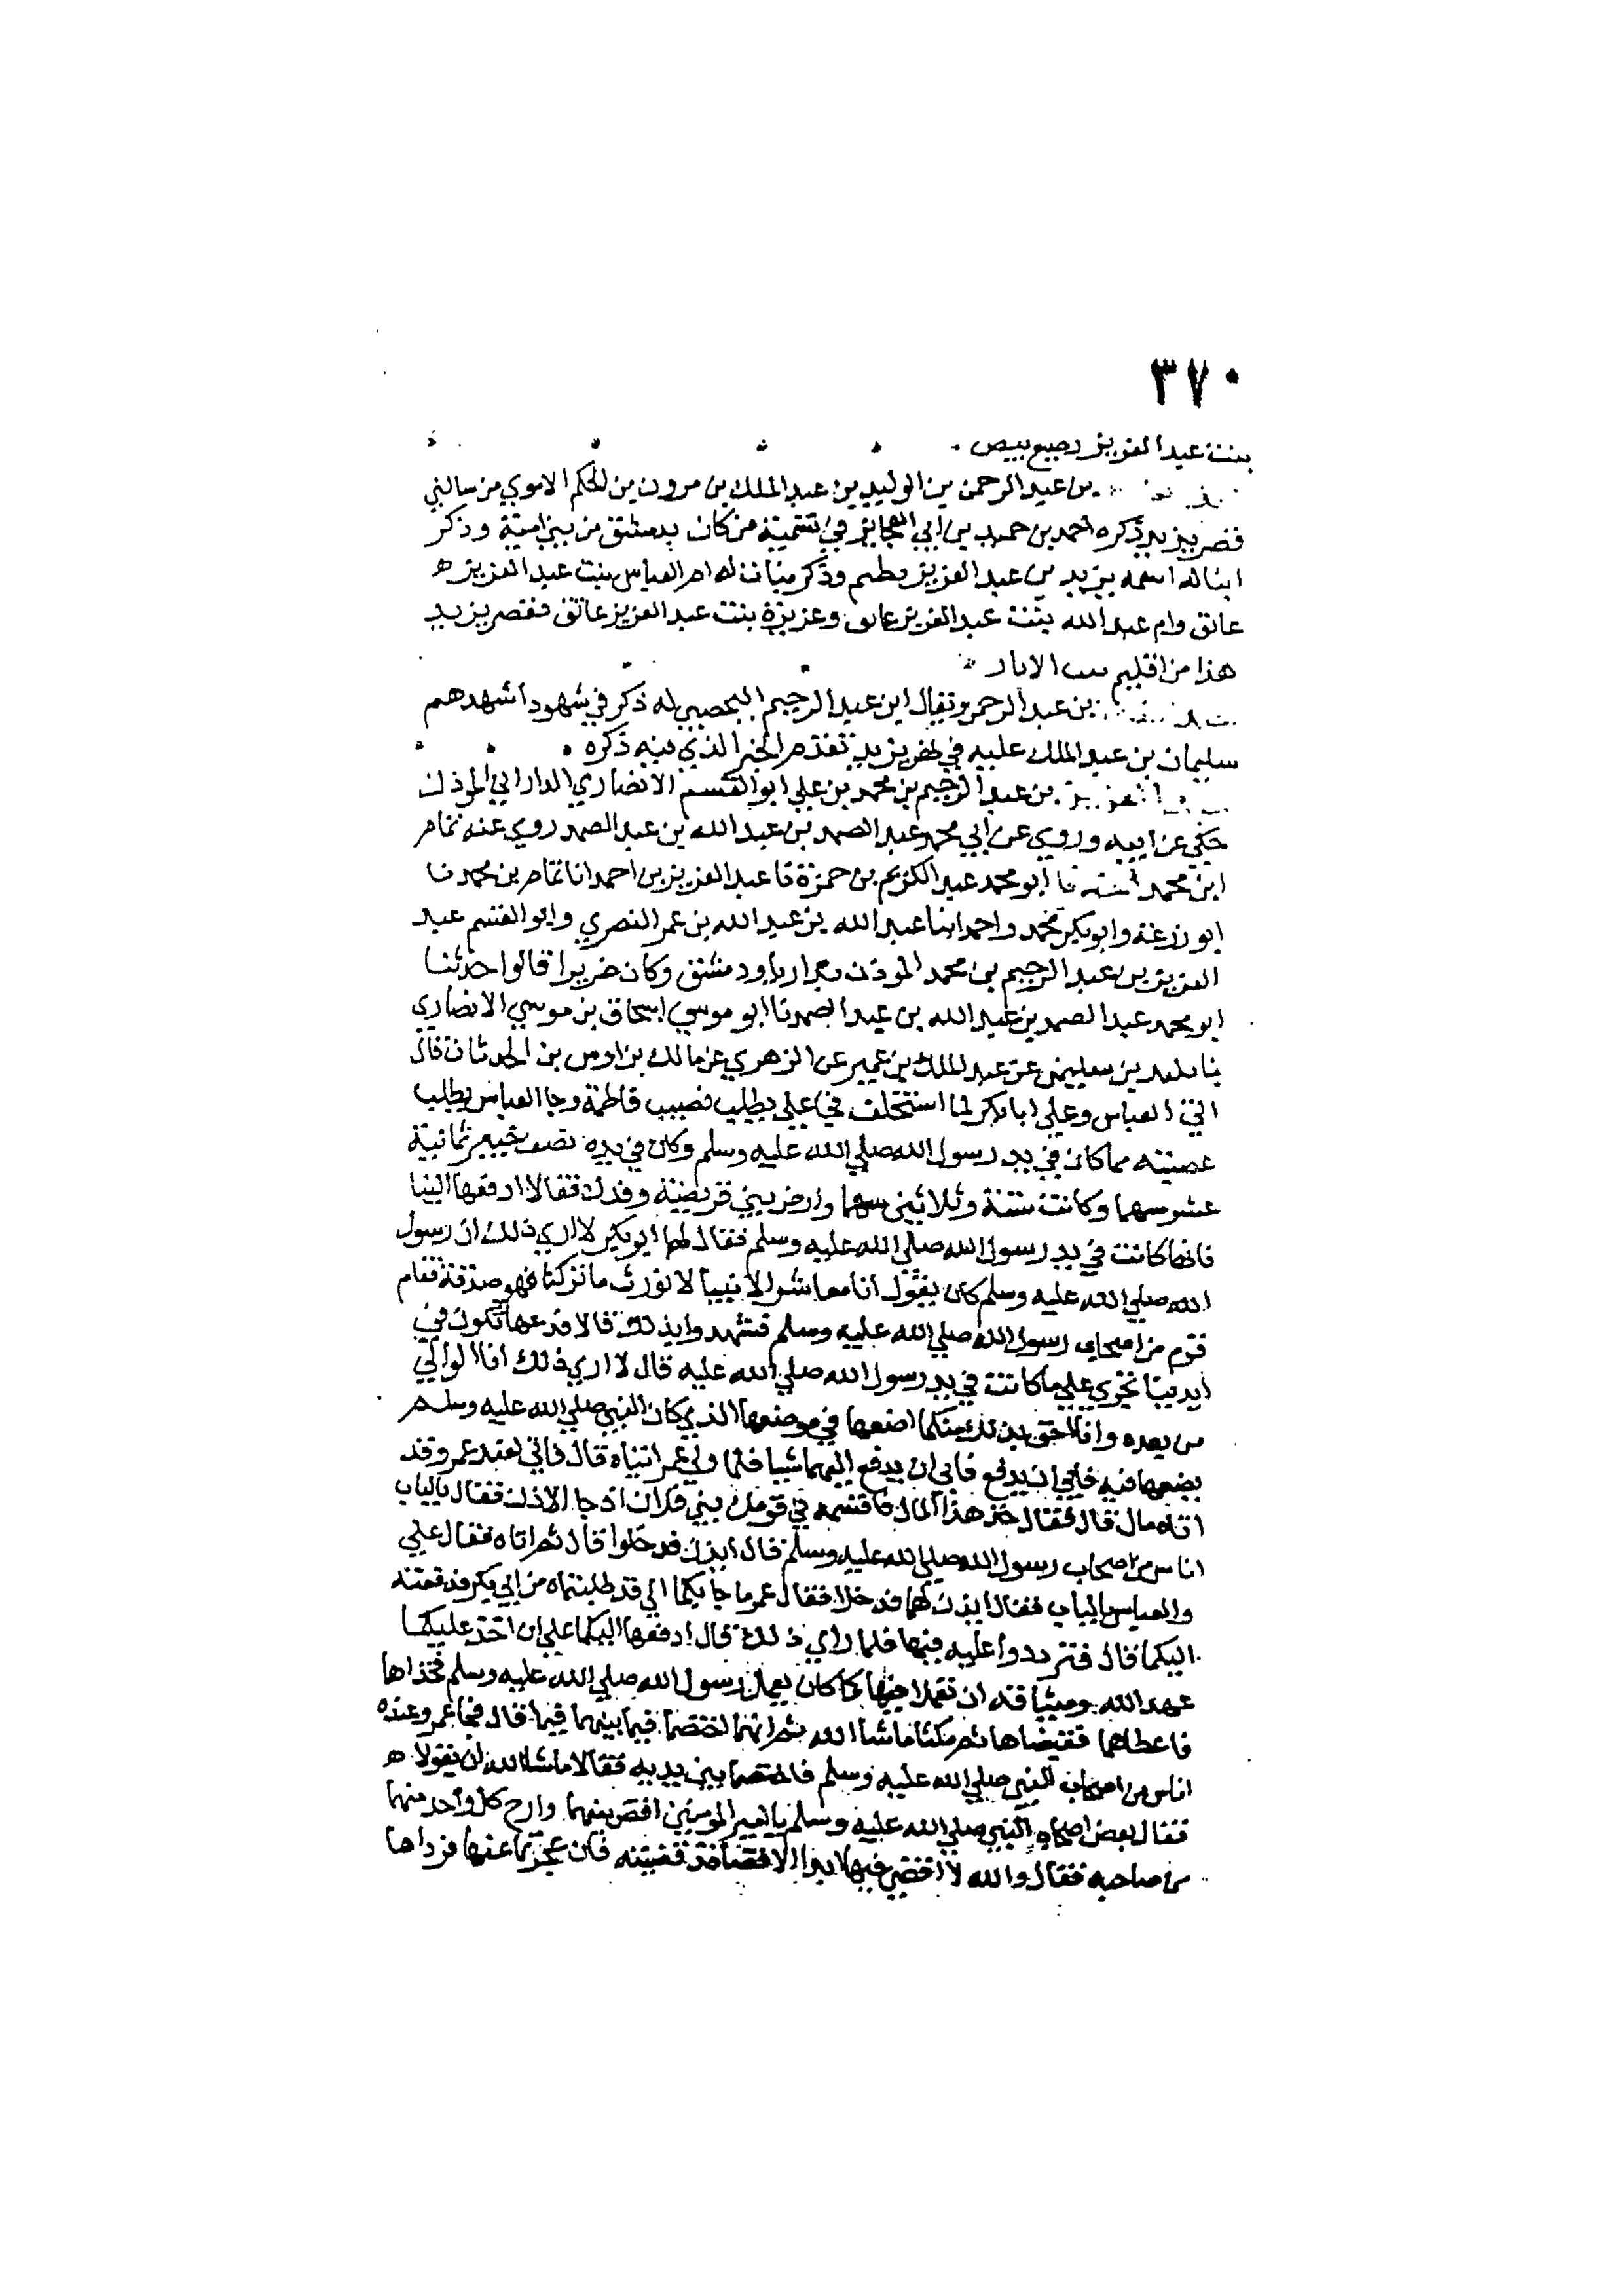 ٣٧٠
بنت عبد العزيز رضيع بيص
بن عبد الرحمن بن الوليد بن عبد الملك بن مرون بن الحكم الاموي من ساكني
قصر يزيد ذكره احمد بن حميد بن ابي العجايز في تسمية من كان بدمشق من بني امية وذكر
ابنا له اسمه يزيد بن عبد العزيز فطيم وذكر بنات له ام العباس بنت عبد العزيز ه
عاتق وام عبد الله بنت عبد العزيز عاتق وعزيزة بنت عبد العزيز عاتق فقصر يزيد
هذا من اقليم بيت الابار
بن عبد الرحمن ويقال ابن عبد الرحيم اليحصبي له ذكر في شهود اشهدهم
سليمان بن عبد الملك عليه في يزيد تقدم الخبر الذي فيه ذكره
العزيز بن عبد الرحيم بن محمد بن علي ابو القسم الانصاري الداراني الموذن
حكى عن ابيه وروي عن ابي محمد عبد الصمد بن عبد الله بن عبد الصمد روي عنه تمام
ابن محمد نا ابو محمد عبد الكريم بن حمزة نا عبد العزيز بن احمد انا تمام بن محمد نا
ابو زرعة وابو بكر محمد واحمد ابنا عبد الله بن عبد الله بن عمر النصري وابو القسم عبد
العزيز بن عبد الرحيم بن محمد الموذن بداريا ودمشق وكان ضريرا قالوا حدثنا
ابو محمد عبد الصمد بن عبد الله بن عبد الصمد نا ابو موسي اسحاق بن موسي الانصاري
نا بن سليمن عن عبد الملك بن عمير عن الزهري عن مالك بن اوس بن الحدثان قال
اتي العباس وعلي ابا بكر لما استخلف فجا علي يطلب نصيب فاطمة وجا العباس يطلب
عصبته مما كان في يد رسول الله صلي الله عليه وسلم وكان في يده نصف خيبر ثمانية
عشر سهما وكانت ستة وثلاثين سهما وارض بني قريضة وفدك فقالا ادفعها الينا
فانها كانت في يد رسول الله صلي الله عليه وسلم فقال لهما ابو بكر لا اري ذلك ان رسول
الله صلي الله عليه وسلم كان يقول انا معاشر الانبيا لا نورث ما تركنا فهو صدقة فقام
قوم من اصحاب رسول الله صلي الله عليه وسلم فشهدوا بذلك قالا فدعها تكون في
ايدينا تجري علي ما كانت في يد رسول الله صلي الله عليه قال لا اري ذلك انا الوالي
من بعده وانا احق بذلك منكما اضعها في موضعها الذي كان النبي صلي الله عليه وسلم
يضعها فيه فابي ان يدفع اليهما شيا فلما ولي عمر اتياه قال فاني لعند عمر وقد
اتاه مال قال فقال خذ هذا المال فاقسمه في قومك بني فلان اذ جا الاذن فقال بالباب
اناس من اصحاب رسول الله صلي الله عليه وسلم قال ايذن فدخلوا قال ثم اتاه فقال علي
والعباس بالباب فقال ايذن لهما فدخلا فقال عمر ما جا بكما الي قد طلبتماه من ابي بكر
اليكما قال فترددوا عليه فيها فلما راي ذلك قال ادفعها اليكما علي ان اخذ عليكما
عهد الله وميثاقه ان تعملا فيها كما كان يعمل رسول الله صلي الله عليه وسلم فخذاها
فاعطاهما فقبضاها ثم مكثا ما شا الله ثم انهما اختصما فيما بينهما فيها قال فجا عمر وعنده
اناس من اصحاب النبي صلي الله عليه وسلم فاختصما بين يديه فقالا ما شا الله ان يقولا ه
فقال بعض اصحاب النبي صلي الله عليه وسلم يا امير المومنين اقض بينهما وارح كل واحد منهما
من صاحبه فقال والله لا اقضي فيها ابدا الا قضا قد قضيته فان عجزتما عنها فرداها